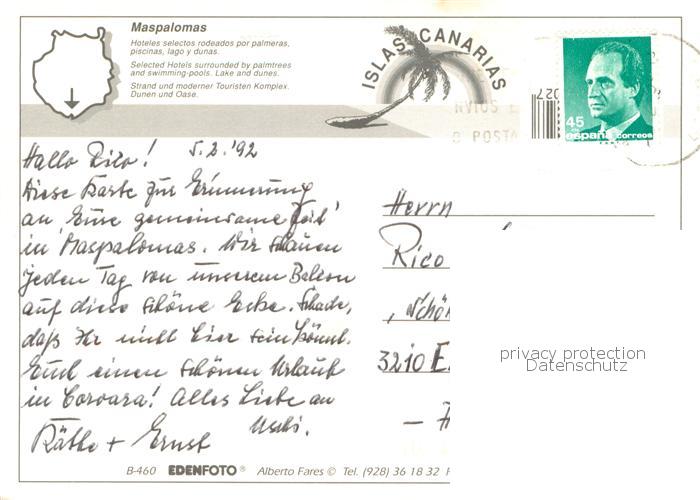 Maspalomas
Hoteles selectos rodeados por palmeras,
piscinas, lago y dunas.
Selected Hotels surrounded by palmtrees
and swimming-pools. Lake and dunes.
Strand und moderner Touristen Komplex.
Dunen und Oase.
ISLAS CANARIAS
45
españa correos
Hallo Rico! 5.2.'92
Diese Karte zur Erinnerung
an 'Eine gemeinsame Zeit'
in Maspalomas. Wir schauen
jeden Tag von unserem Balkon
auf diese schöne Ecke. Schade,
daß Ihr nicht hier sein könnt.
Euch einen schönen Urlaub
in Corvara! Alles Liebe an
Uschi.
Käthe + Ernst
Herrn
Rico
3210 E.
privacy protection
Datenschutz
B-460 EDENFOTO ® Alberto Fares © Tel. (928) 36 18 32